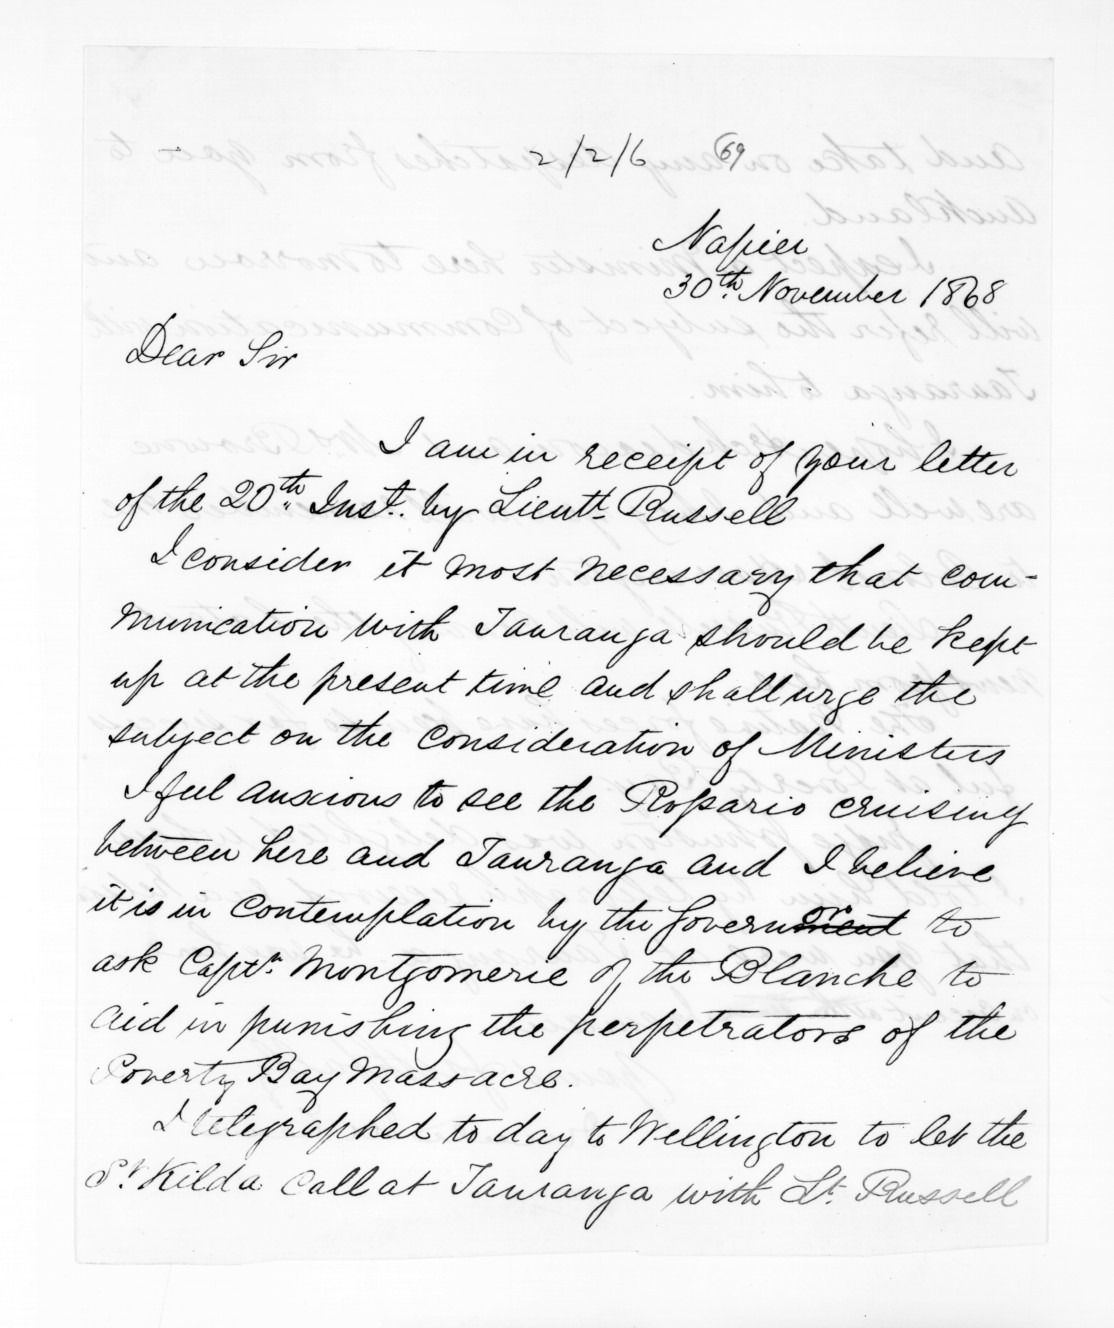 2/2/6 69
Napier
30th. November 1868
Dear Sir
I am in receipt of your letter
of the 20th. Inst. by Lieutt. Russell
I consider it most necessary that com-
munication with Tauranga should be kept
up at the present time and shall urge the
subject on the consideration of Ministers
I feel anxious to see the Rosario cruising
between here and Tauranga and I believe
it is in contemplation by the Governor to
ask Captn. Montgomerie of the Blanche to
aid in punishing the perpetrators of the
Poverty Bay Massacre.
I telegraphed to day to Wellington to let the
St. Kilda call at Tauranga with Lt. Russell